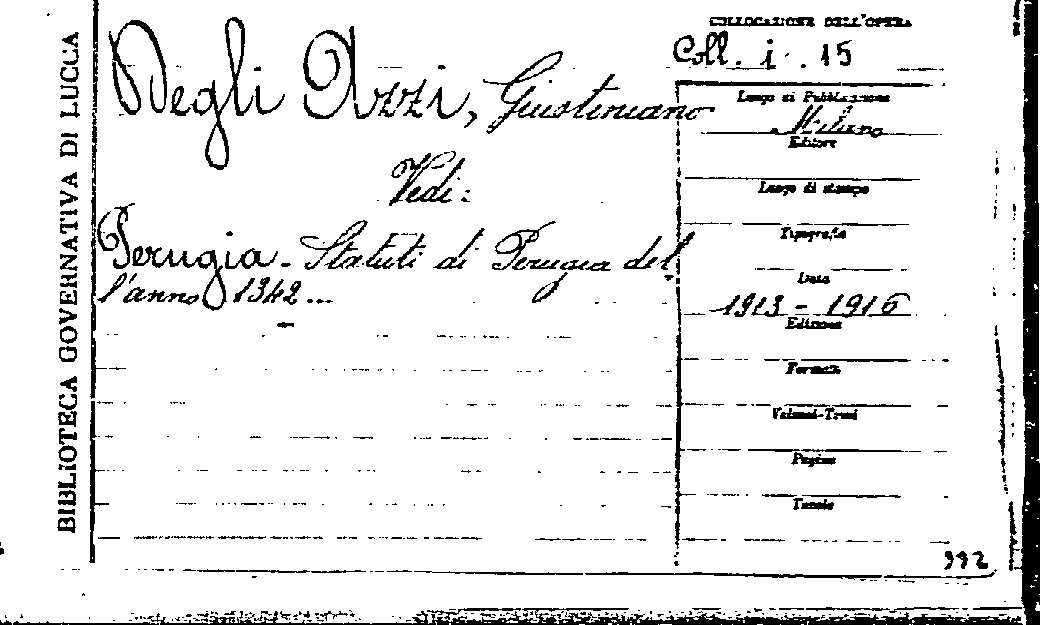 BIBLIOTECA GOVERNATIVA DI LUCCA
Degli Azzi, Giustiniano
Vedi:
Perugia - Statuti di Perugia del
l'anno 1342...
COLLOCAZIONE DELL'OPERA
Coll. i. 15
Luogo di Pubblicazione
Milano
Editore
Luogo di stampa
Tipografia
Data
1913 - 1916
Edizione
Formato
Volumi-Tomi
Pagine
Tavole
992